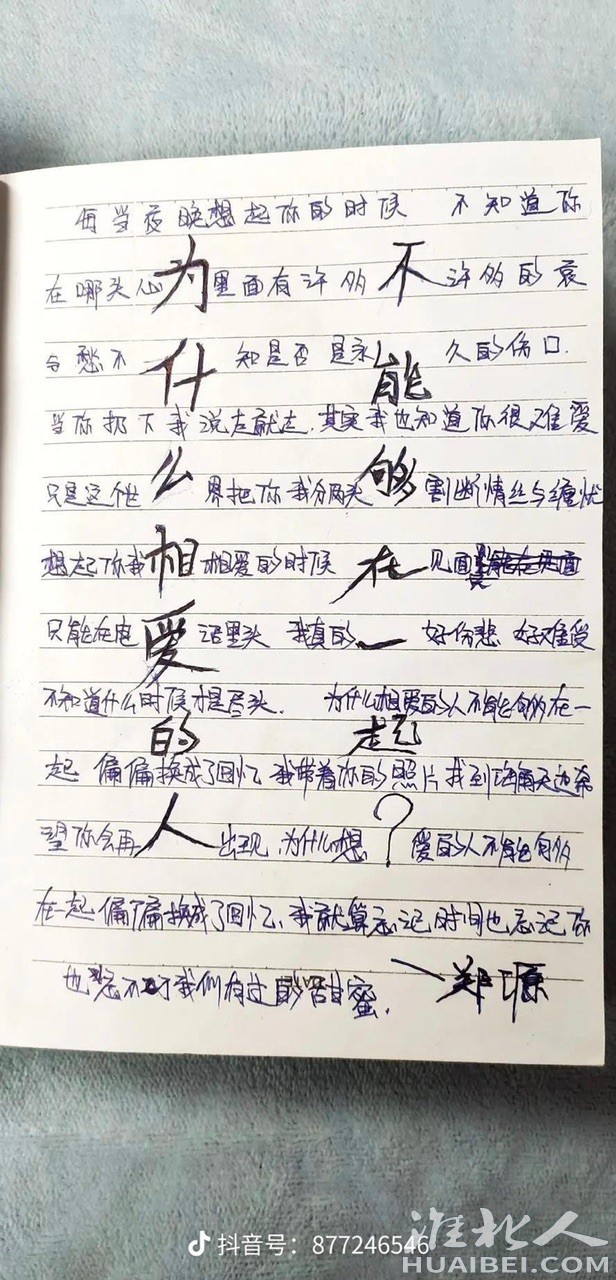 每当夜晚想起你的时候 不知道你
在哪头心为里面有许多不许多的哀
与愁不什知是否是永能久的伤口.
当你扔下我说走就走.其实我也知道你很难爱
只是这个世么界把你我分两头够割断情丝与缠忧
想起你我相相爱的时候在见面
只能在电爱话里头 我真的一好伤悲 好难受
不知道什么时候才是尽头. 为什么相爱的人不能够在一
的 起
起 偏偏换成了回忆 我带着你的照片找到海角天边希
望你会再人出现,为什么想?爱的人不能够
在起偏偏换成了回忆,我就算忘记时间也忘记你
也愁不了我们有过的甜蜜. 一郑源
抖音号：877246546
淮北人
HUAIBEI.COM